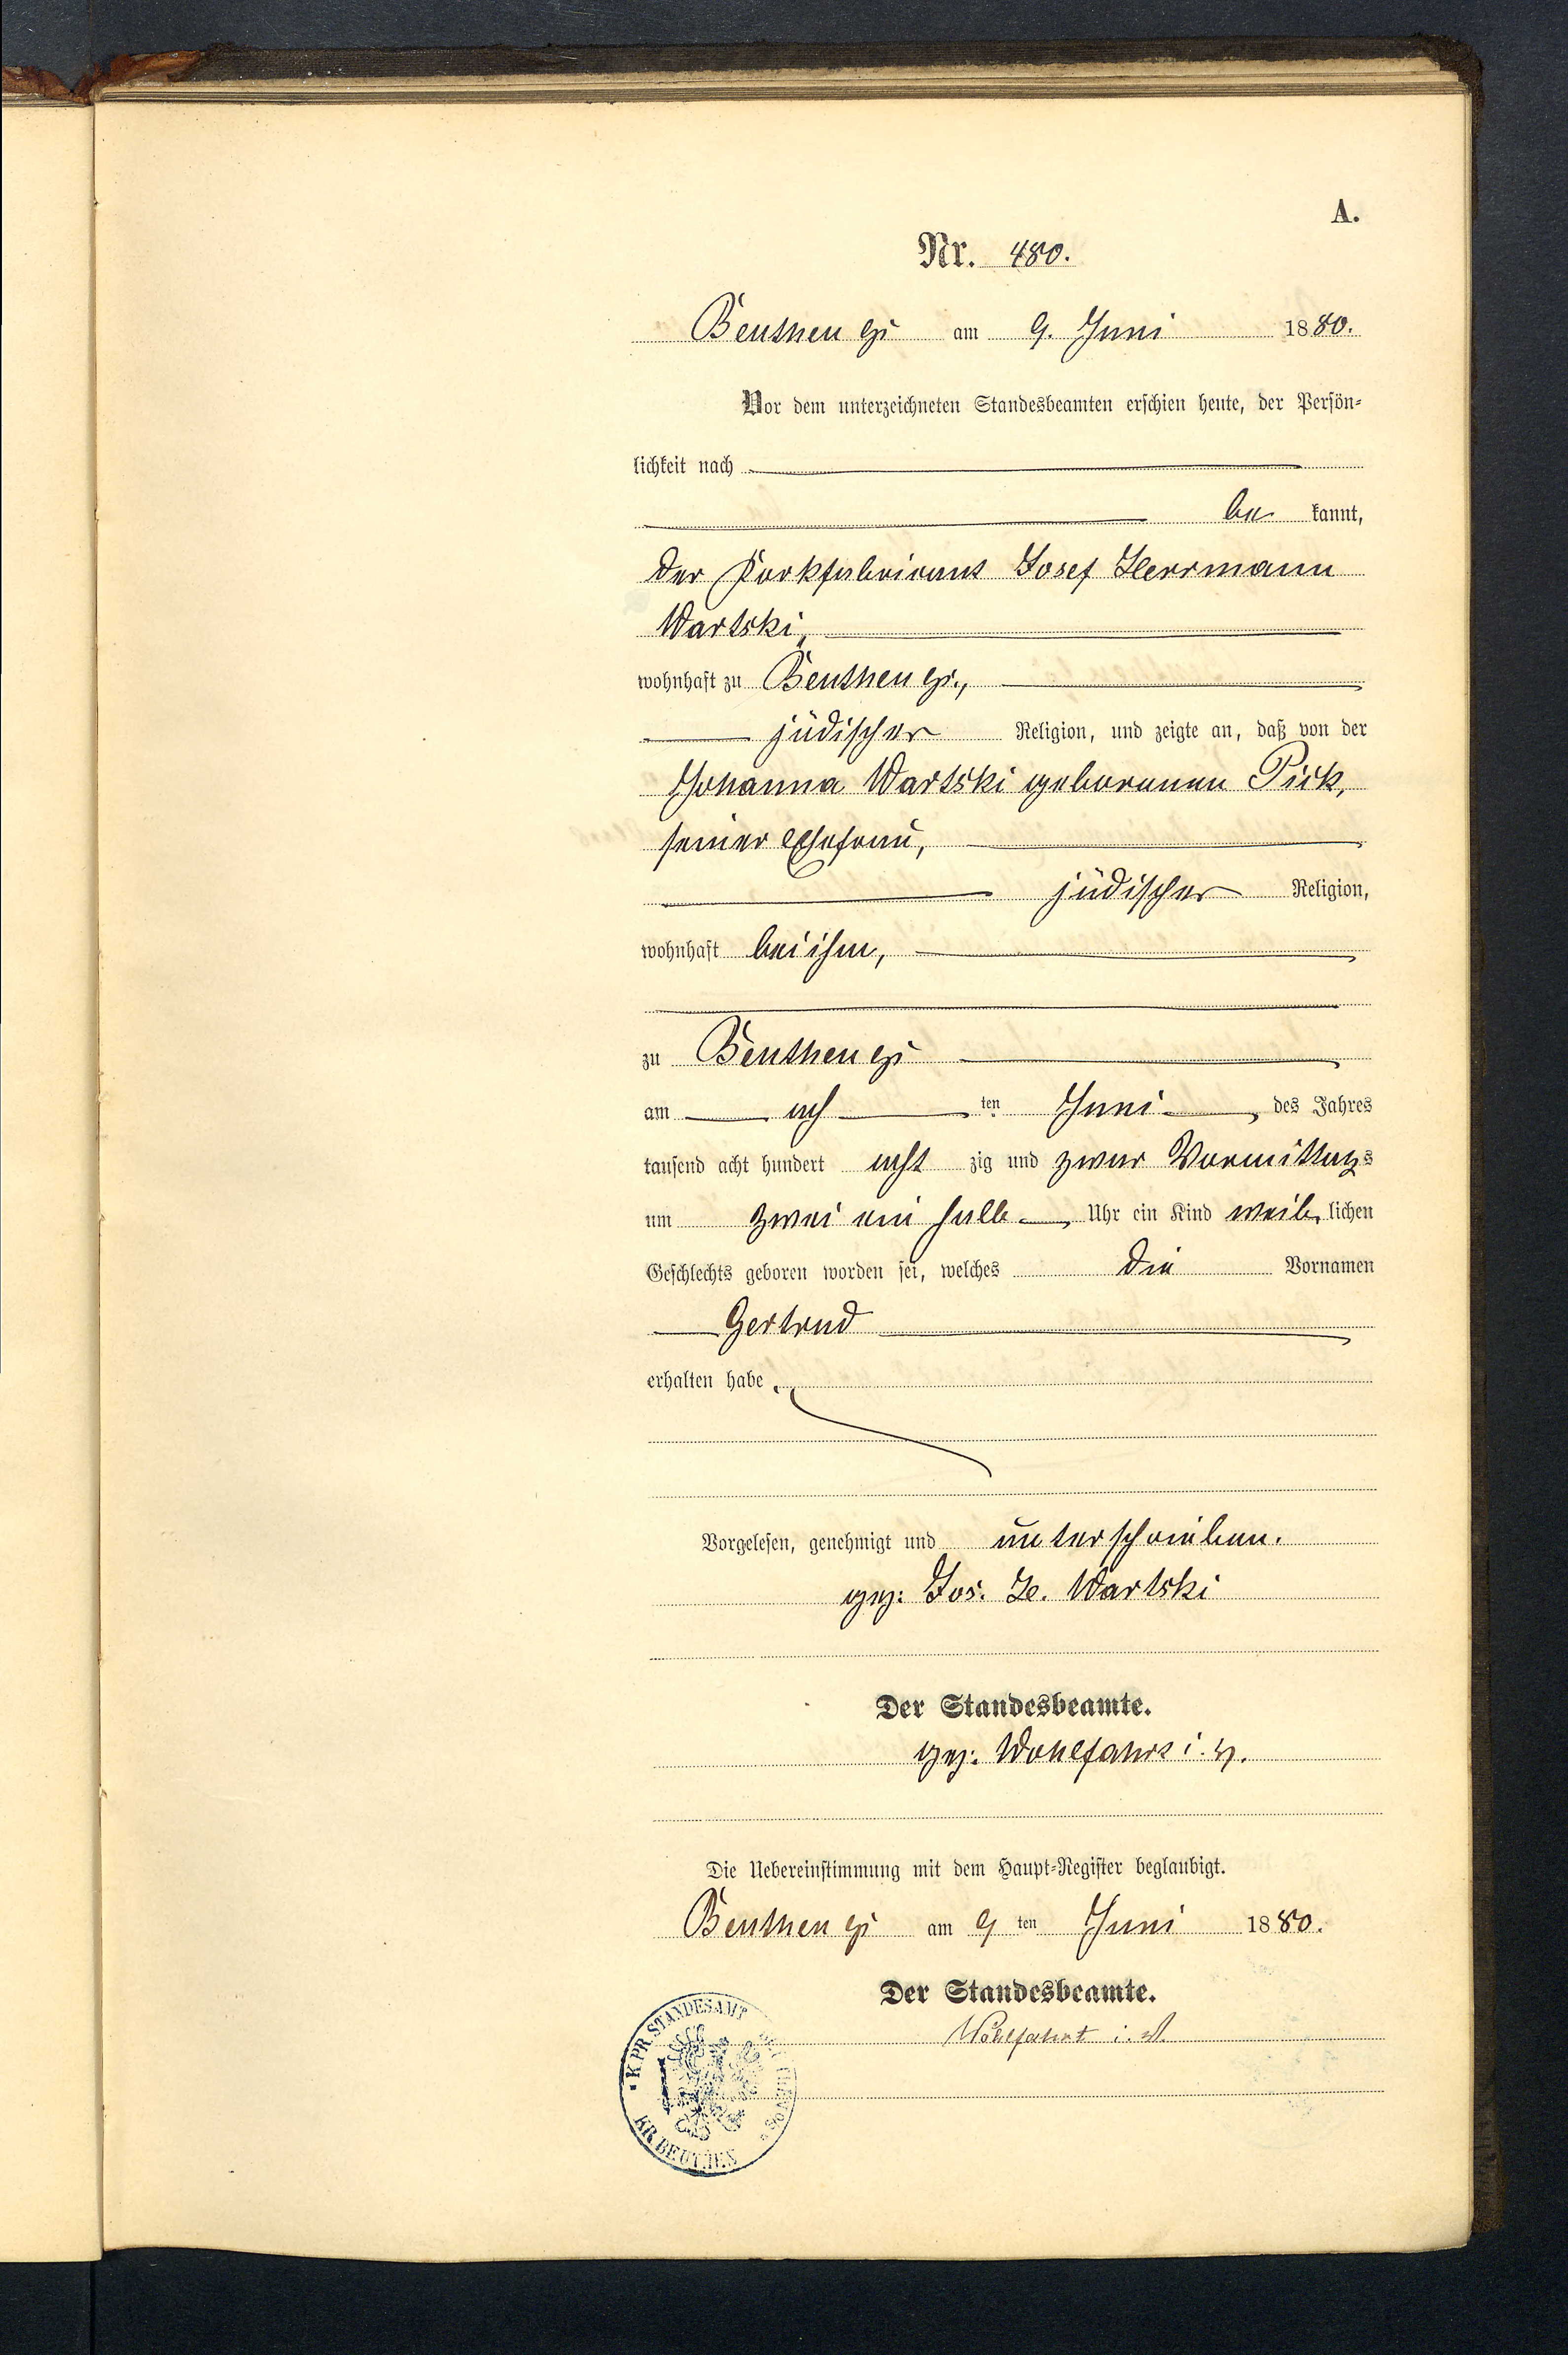 A.
Nr. 480.
Beuthen OS am 9. Juni 1880.
Vor dem unterzeichneten Standesbeamten erschien heute, der Persön-
lichkeit nach
be kannt,
der Korkfabrikant Josef Herrmann
Wartski,
wohnhaft zu Beuthen OS.,
jüdischer Religion, und zeigte an, daß von der
Johanna Wartski geborenen Pick,
seiner Ehefrau,
jüdischer Religion,
wohnhaft bei ihm,
zu Beuthen OS
am ach ten Juni, des Jahres
tausend acht hundert acht zig und zwar Vormittags
um zwei ein halb Uhr ein Kind weib lichen
Geschlechts geboren worden sei, welches die Vornamen
Gertrud
erhalten habe.
Vorgelesen, genehmigt und unterschrieben.
gez: Jos. H. Wartski
Der Standesbeamte.
gez: Wohlfahrt i. V.
Die Uebereinstimmung mit dem Haupt-Register beglaubigt.
Beuthen OS am 9 ten Juni 1880.
Der Standesbeamte.
Wohlfahrt i. V.
K. PR. STANDESAMT
KR. BEUTHEN